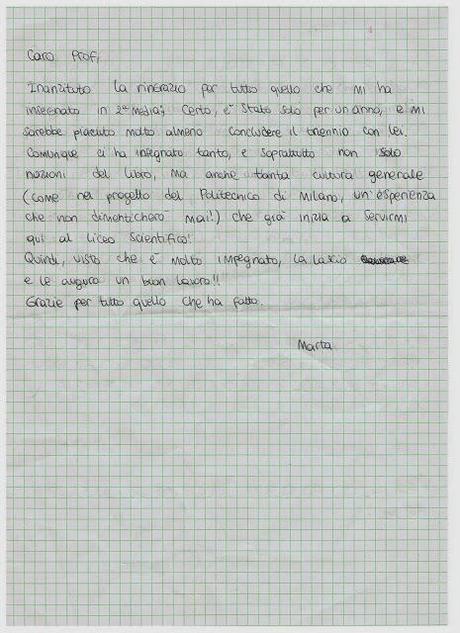 Caro Prof,
Inanzituto la ringrazio per tutto quello che mi ha
insegnato in 2ª media; certo, è stato solo per un anno, e mi
sarebbe piaciuto molto almeno concludere il triennio con lei.
Comunque ci ha insegnato tanto, e sopratutto non solo
nozioni del libro, ma anche tanta cultura generale
(come nel progetto del Politecnico di Milano, un'esperienza
che non dimenticherò mai!) che già inizia a servirmi
qui al Liceo Scientifico!
Quindi, visto che è molto impegnato, la lascio
e le auguro un buon lavoro!!
Grazie per tutto quello che ha fatto.
Marta